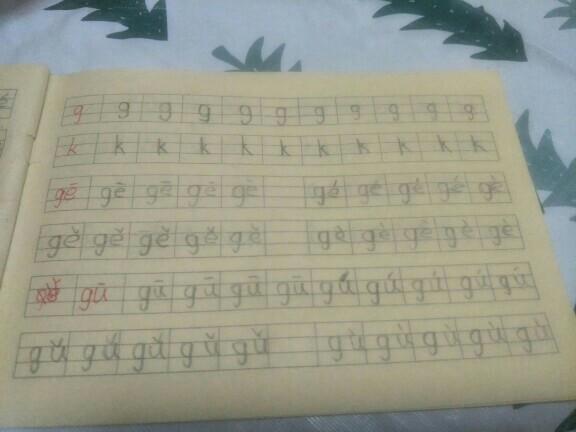 g g g g g g g g g g g
k k k k k k k k k k k
gē gē gē gē gē gé gé gé gé gé
gě gě gě gě gě gè gè gè gè gè
gū gū gū gū gū gú gú gú gú gú
gǔ gǔ gǔ gǔ gǔ gù gù gù gù gù